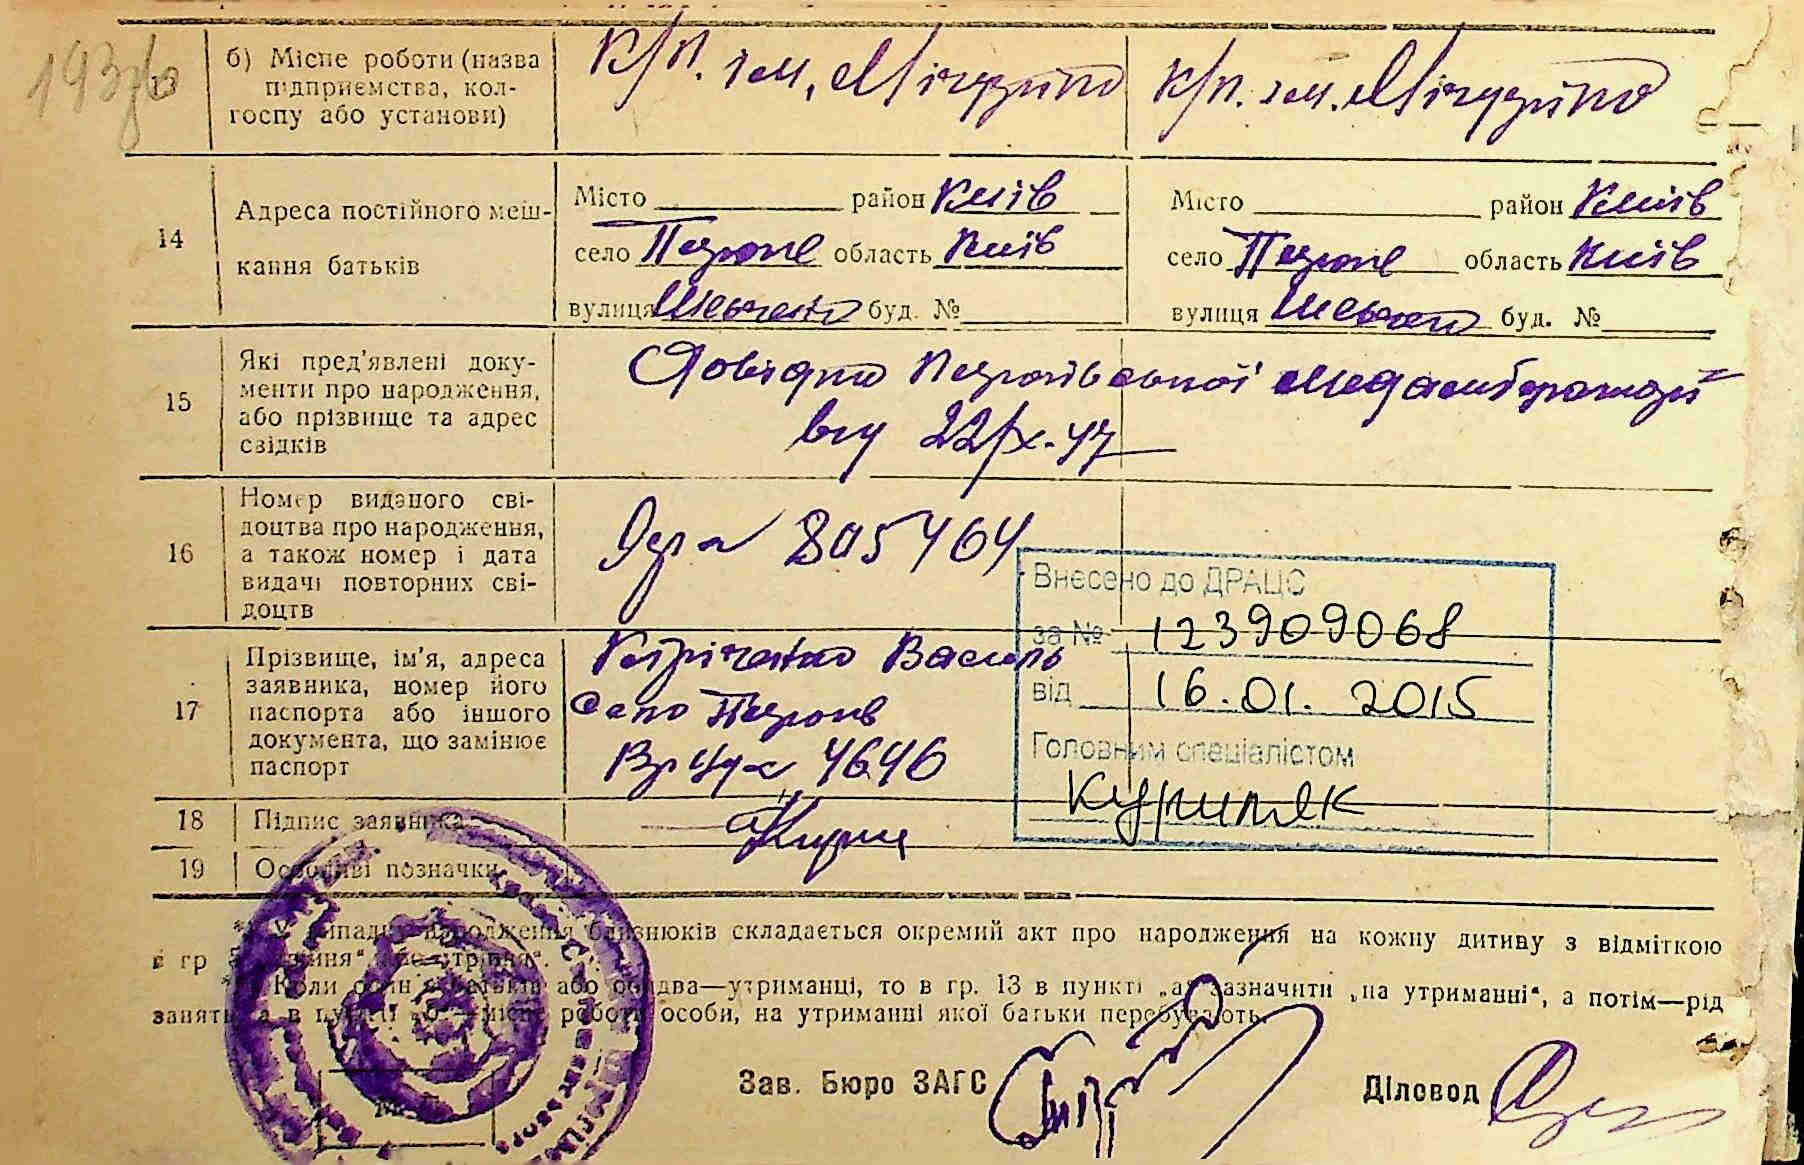 193
б) Місце роботи (назва
підприємства, кол-
госпу або установи)
К/п. ім. Мічуріна
К/п. ім. Мічуріна
14
Адреса постійного меш-
кання батьків
Місто район Київ
село область Київ
вулиця буд. №
Місто район Київ
село область Київ
вулиця буд. №
15
Які пред'явлені доку-
менти про народження,
або прізвище та адрес
свідків
Довідка
від 22/X-47
16
Номер виданого сві-
доцтва про народження,
а також номер і дата
видачі повторних сві-
доцтв
805464
17
Прізвище, ім'я, адреса
заявника, номер його
паспорта або іншого
документа, що замінює
паспорт
Василь
село
4646
18
Підпис заявника
19
Особливі позначки
Внесено до ДРАЦС
за № 123909068
від 16.01.2015
Головним спеціалістом
Куриляк
*) У випадку народження близнюків складається окремий акт про народження на кожну дитину з відміткою
в гр
Коли один з батьків або обидва—утриманці, то в гр. 13 в пункті „а" зазначити „на утриманні", а потім—рід
заняття, а в пункті „б"—місце роботи особи, на утриманні якої батьки перебувають.
Зав. Бюро ЗАГС
Діловод
М. П.